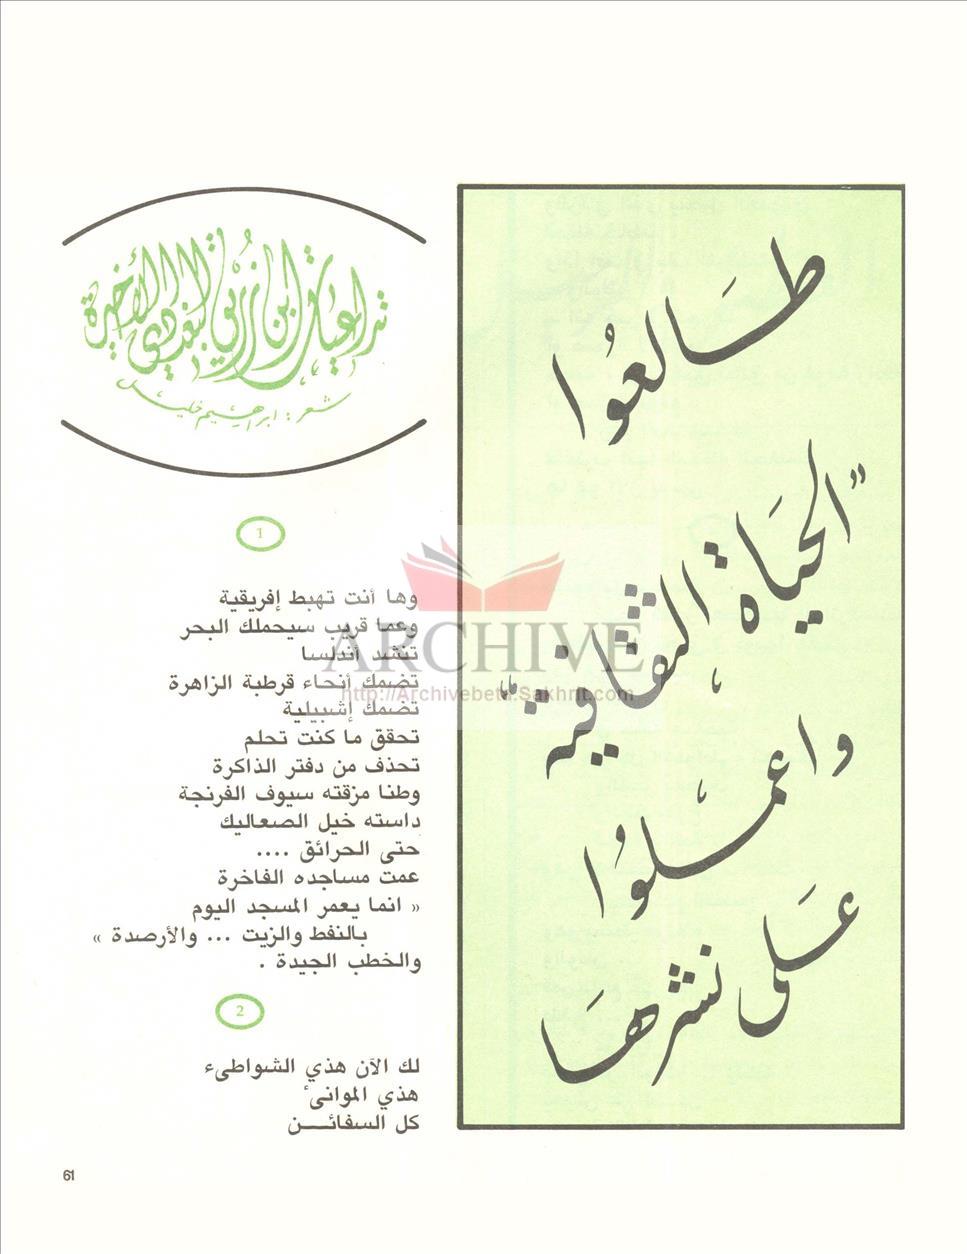 طالعوا
"الحياة الثقافية"
واعملوا
على نشرها
تداعيات ابن زريق البغدادي الأخيرة
شعر : ابراهيم خليل
1
وها أنت تهبط إفريقية
وعما قريب سيحملك البحر
تنشد أندلسا
تضمك أنحاء قرطبة الزاهرة
تضمك إشبيلية
تحقق ما كنت تحلم
تحذف من دفتر الذاكرة
وطنا مزقته سيوف الفرنجة
داسته خيل الصعاليك
حتى الحرائق ....
عمت مساجده الفاخرة
« انما يعمر المسجد اليوم
بالنفط والزيت ... والأرصدة »
والخطب الجيدة .
2
لك الآن هذي الشواطىء
هذي الموانىء
كل السفائـــن
61
ARCHIVE
http://Archivebeta.Sakhrit.com